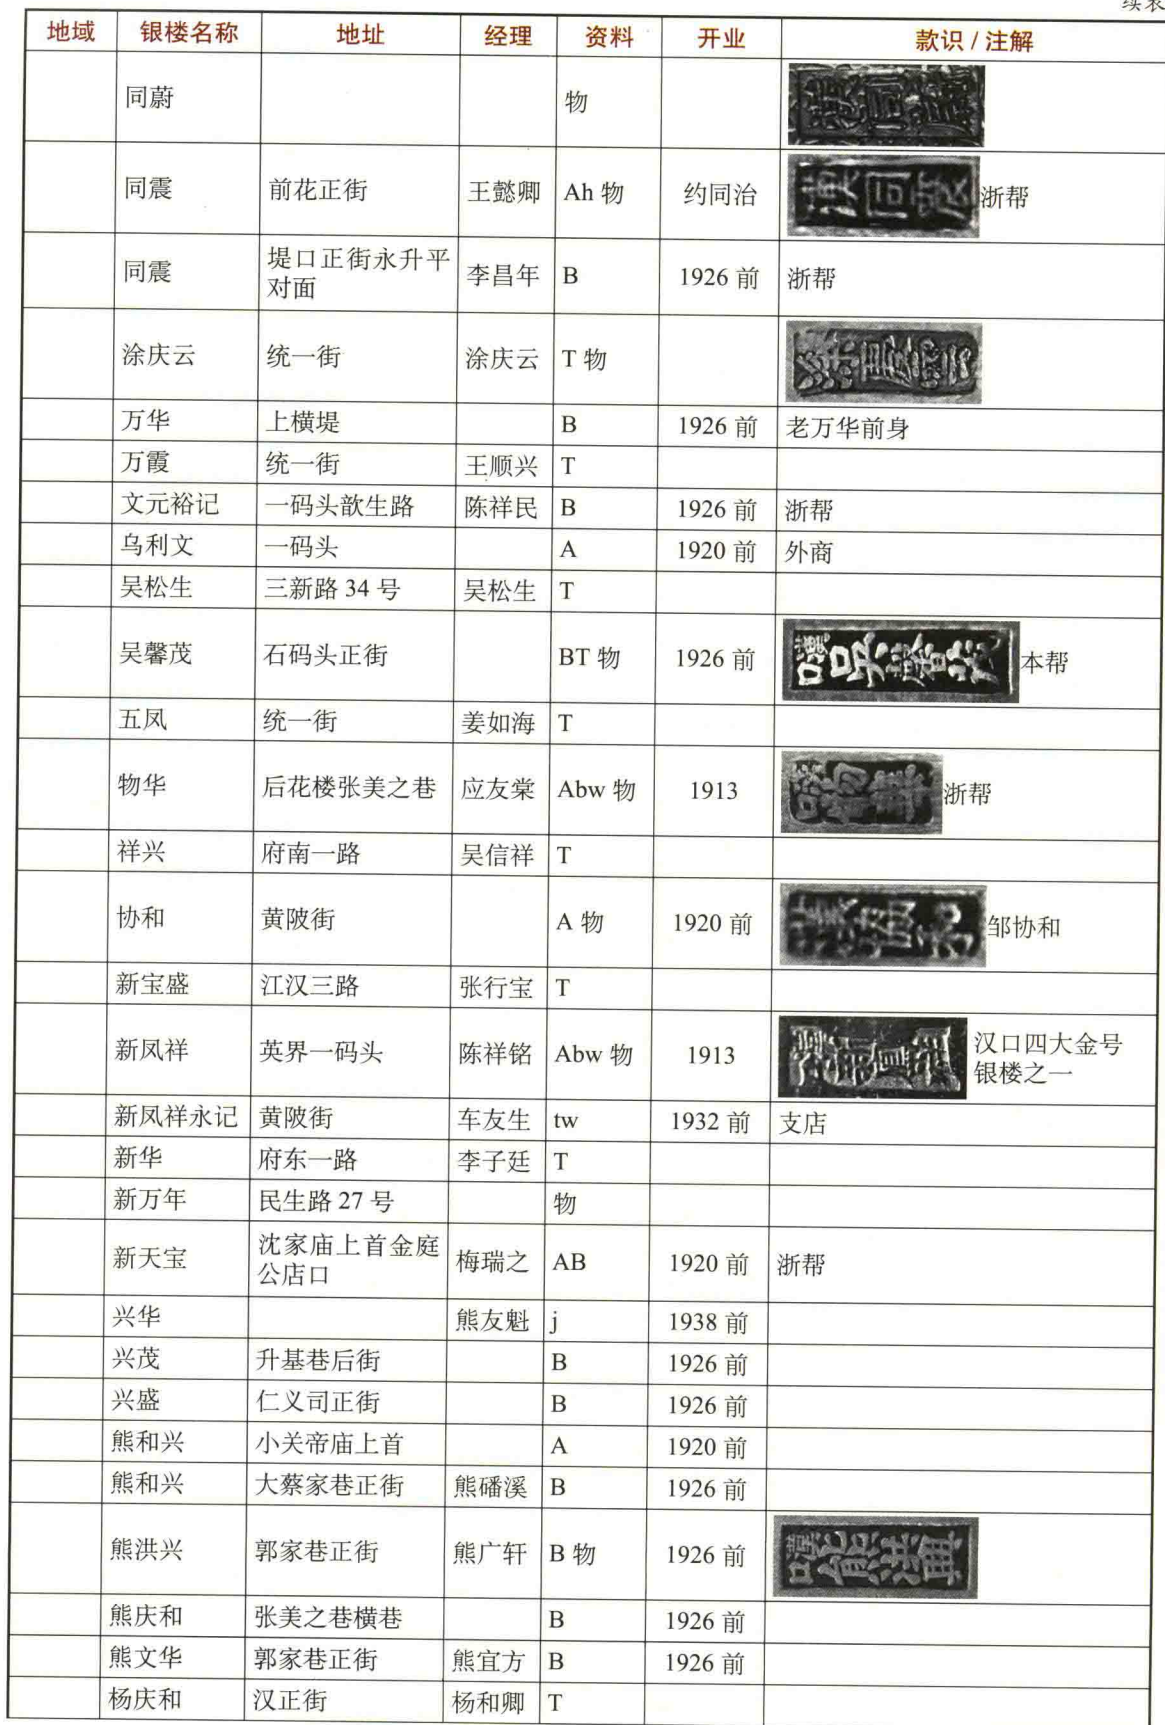 续表
地域 银楼名称 地址 经理 资料 开业 款识 / 注解
同蔚 物
同震 前花正街 王懿卿 Ah 物 约同治 汉同震 浙帮
同震 堤口正街永升平 李昌年 B 1926 前 浙帮
对面
涂庆云 统一街 涂庆云 T 物 涂慶雲
万华 上横堤 B 1926 前 老万华前身
万霞 统一街 王顺兴 T
文元裕记 一码头歆生路 陈祥民 B 1926 前 浙帮
乌利文 一码头 A 1920 前 外商
吴松生 三新路 34 号 吴松生 T
吴馨茂 石码头正街 BT 物 1926 前 漢口吴馨茂 本帮
五凤 统一街 姜如海 T
物华 后花楼张美之巷 应友棠 Abw 物 1913 漢口物華 浙帮
祥兴 府南一路 吴信祥 T
协和 黄陂街 A 物 1920 前 邹协和
新宝盛 江汉三路 张行宝 T
新凤祥 英界一码头 陈祥铭 Abw 物 1913 汉口四大金号
银楼之一
新凤祥永记 黄陂街 车友生 tw 1932 前 支店
新华 府东一路 李子廷 T
新万年 民生路 27 号 物
新天宝 沈家庙上首金庭 梅瑞之 AB 1920 前 浙帮
公店口
兴华 熊友魁 j 1938 前
兴茂 升基巷后街 B 1926 前
兴盛 仁义司正街 B 1926 前
熊和兴 小关帝庙上首 A 1920 前
熊和兴 大蔡家巷正街 熊磻溪 B 1926 前
熊洪兴 郭家巷正街 熊广轩 B 物 1926 前 漢口熊洪興
熊庆和 张美之巷横巷 B 1926 前
熊文华 郭家巷正街 熊宜方 B 1926 前
杨庆和 汉正街 杨和卿 T